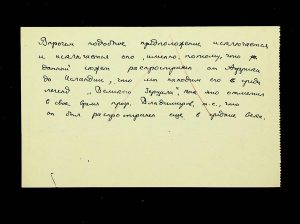 Впрочем подобное предположение исключается
и исключается оно, именно, потому, что
данный сюжет распространен от Африки
до Исландии, что мы находим его в среде
легенд „Великого Зерцала", как это отметил
в свое время проф. Владимиров, т.е., что
он был распространен еще в средние века.